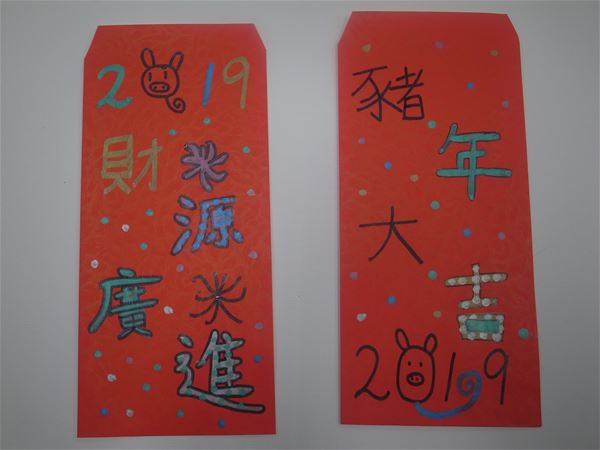 2019
財
源
廣
進
豬
年
大
吉
2019